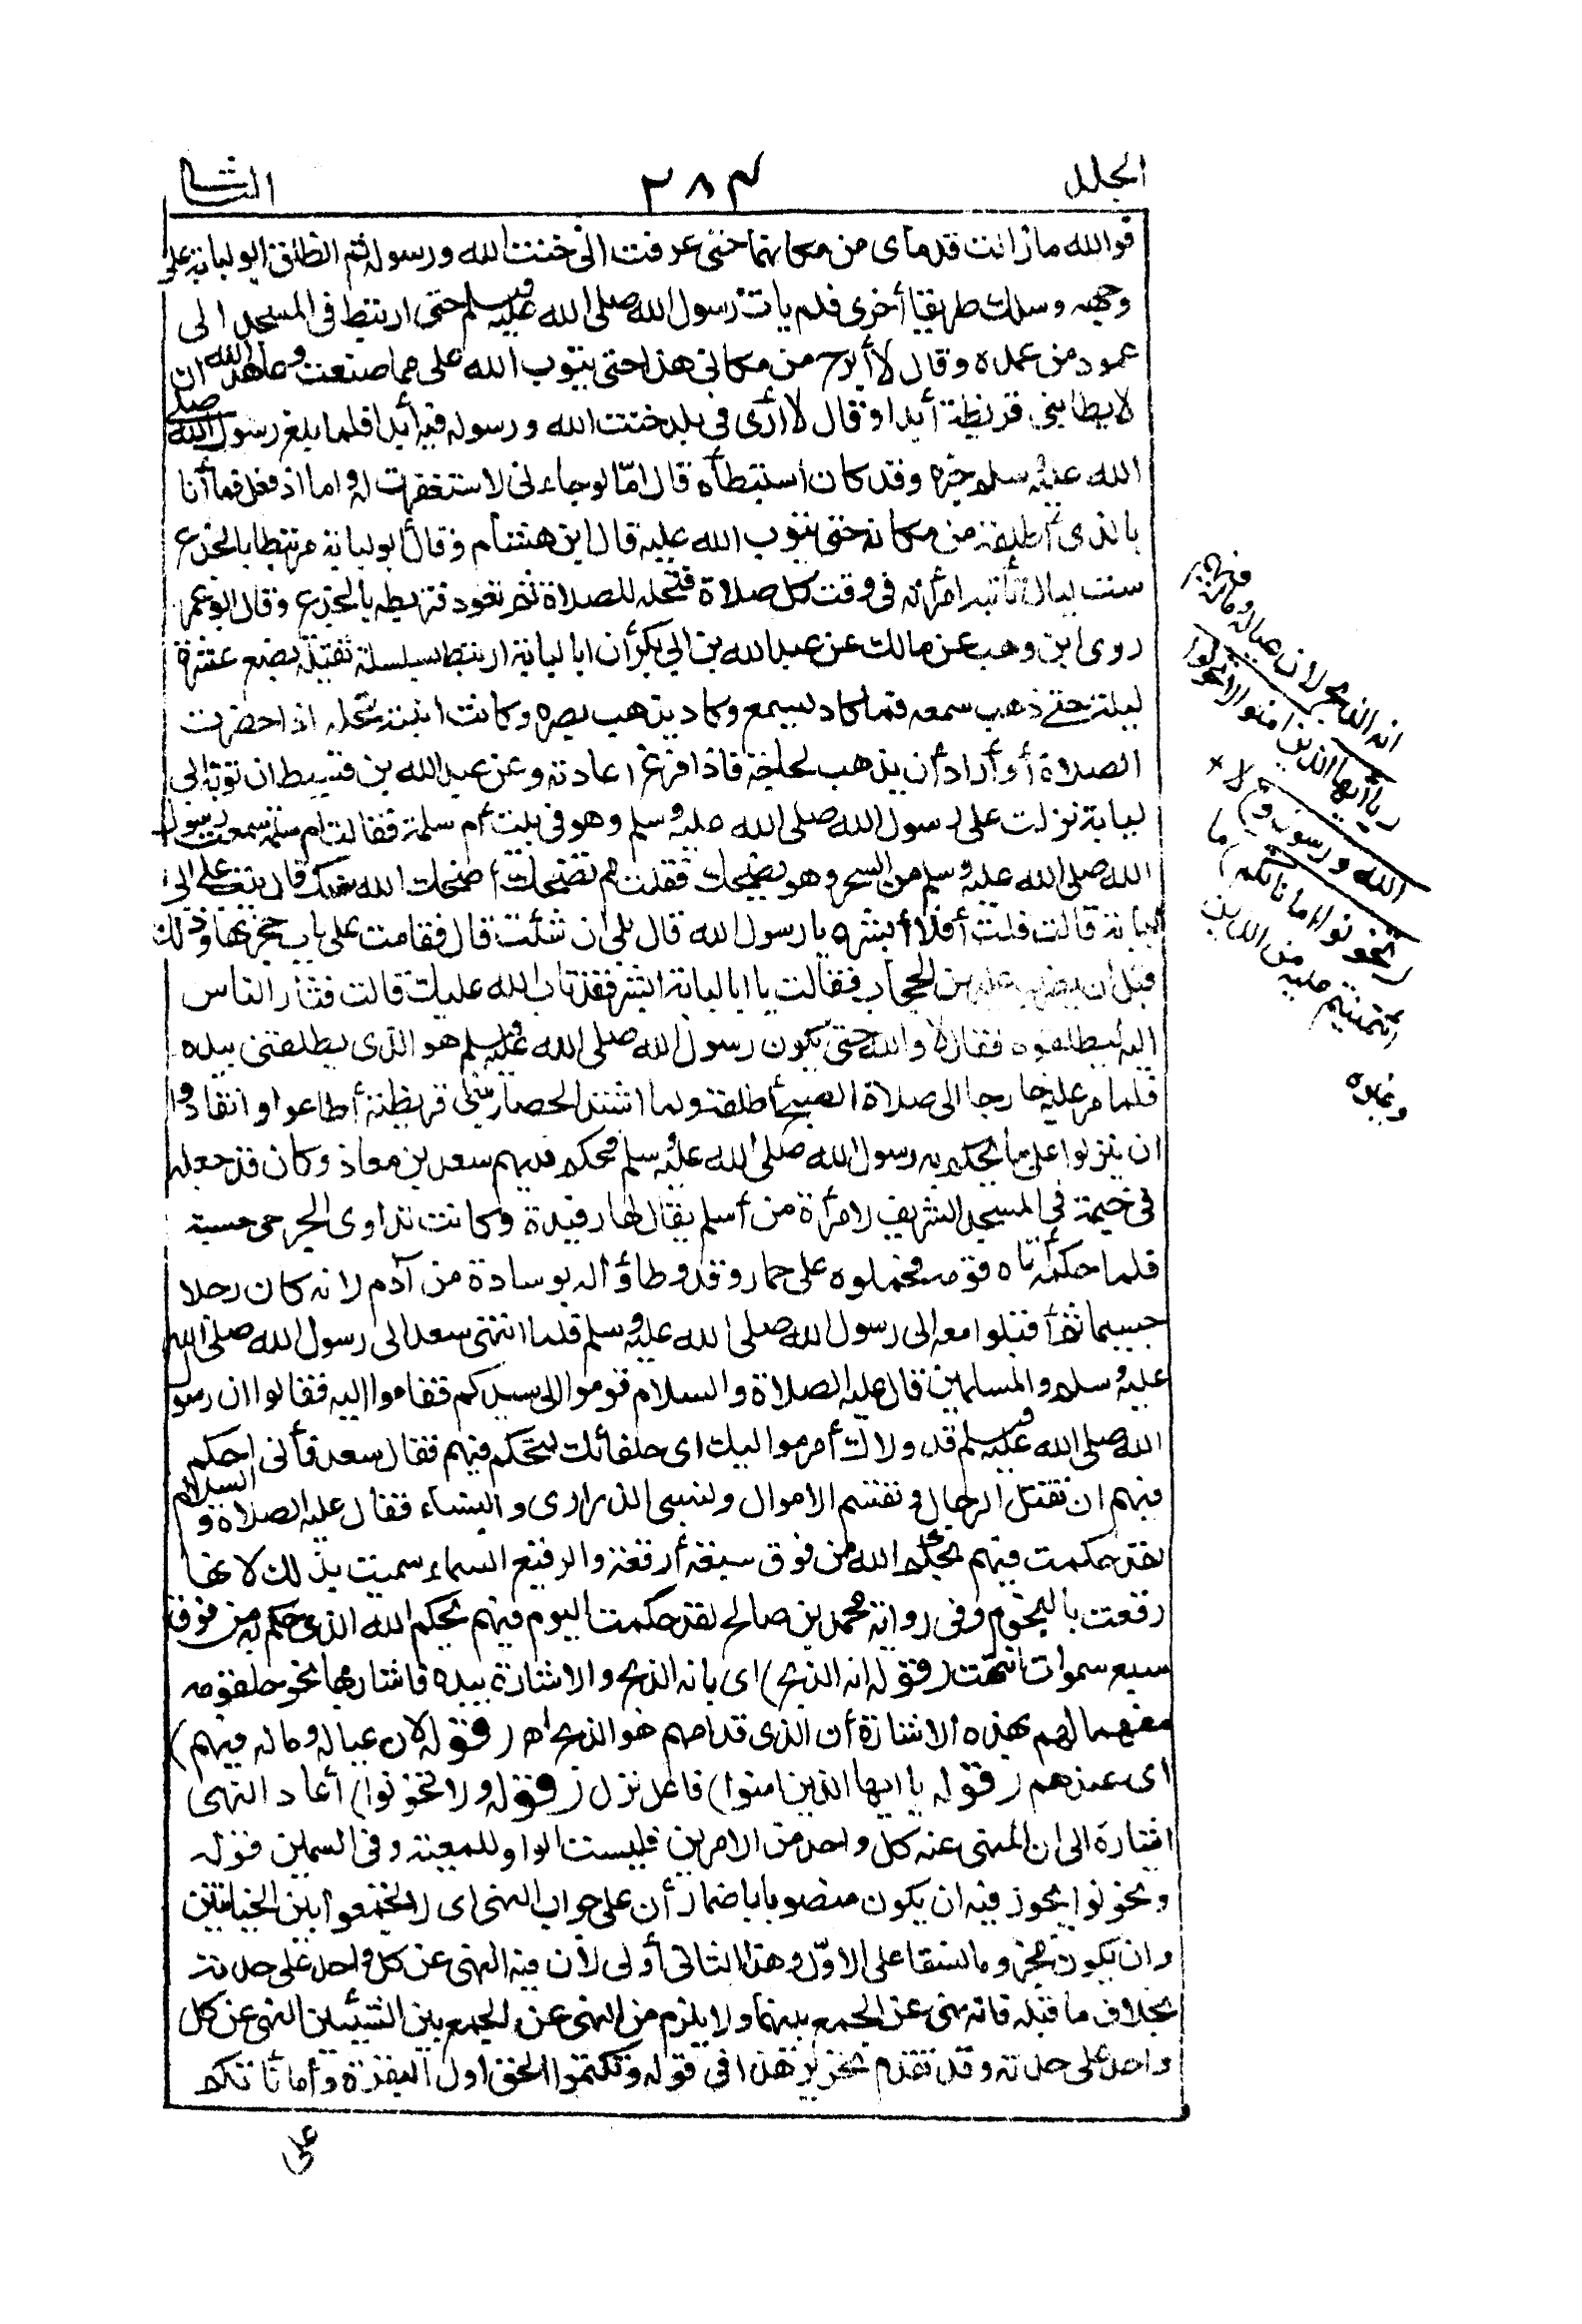 المجلد
٢٨٣
الثانى
فوالله مازالت قدماى من مكانهما حتى عرفت انى خنت الله ورسوله ثم انطلق ابو لبابة على
وجهه وسلك طريقا أخرى فلم يات رسول الله صلى الله عليه وسلم حتى ارتبط فى المسجد الى
عمود من عمده وقال لا أبرح من مكانى هذا حتى يتوب الله على مما صنعت وعاهد الله ان
لا يطا بنى قريظة أبدا وقال لا أرى فى بلد خنت الله ورسوله فيه أبدا فلما بلغ رسول الله صلى
الله عليه وسلم خبره وقد كان استبطأه قال امّا لو جاءنى لاستغفرت له واما اذ فعل فما أنا
بالذى أطلقه من مكانه حتى يتوب الله عليه قال ابن هشام وقال أبو لبابة مرتبطا بالجذع
ست ليال تأتيه امرأته فى وقت كل صلاة فتحله للصلاة ثم تعود فتربطه بالجذع وقال ابو عمر
روى ابن وهب عن مالك عن عبد الله بن ابى بكر أن ابا لبابة ارتبط بسلسلة ثقيلة بضع عشرة
ليلة حتى ذهب سمعه فما كاد يسمع وكاد يذهب بصره وكانت ابنته تحله اذا حضرت
الصلاة أو أراد أن يذهب لحاجة فاذا فرغ اعادته وعن عبد الله بن قسيط ان توبة ابى
لبابة نزلت على رسول الله صلى الله عليه وسلم وهو فى بيت أم سلمة فقالت ام سلمة سمعت رسول
الله صلى الله عليه وسلم من السحر وهو يضحك فقلت مم تضحك أضحك الله سنك قال تيب على ابى
لبابة قالت قلت أفلا أبشره يا رسول الله قال بلى ان شئت قال فقامت على باب حجرتها وذلك
قبل ان يضرب عليهن الحجاب فقالت يا ابا لبابة ابشر فقد تاب الله عليك قالت فثار الناس
اليه ليطلقوه فقال لا والله حتى يكون رسول الله صلى الله عليه وسلم هو الذى يطلقنى بيده
فلما مر عليه خارجا الى صلاة الصبح أطلقه ولما اشتد الحصار ببنى قريظة أطاعوا وانقادوا
ان ينزلوا على ما يحكم به رسول الله صلى الله عليه وسلم فحكم فيهم سعد بن معاذ وكان قد جعله
فى خيمة فى المسجد الشريف لامرأة من أسلم يقال لها رفيدة وكانت تداوى الجرحى حسبة
فلما حكمه أتاه قومه فحملوه على حمار وقد وطاؤا له بوسادة من آدم لانه كان رجلا
جسيما ثم أقبلوا معه الى رسول الله صلى الله عليه وسلم فلما انتهى سعد الى رسول الله صلى الله
عليه وسلم والمسلمين قال عليه الصلاة والسلام قوموا الى سيدكم فقاموا اليه فقالوا ان رسول
الله صلى الله عليه وسلم قد ولاك أمر مواليك اى حلفائك لتحكم فيهم فقال سعد فأنى احكم
فيهم ان تقتل الرجال وتقسم الاموال وتسبى الذرارى والنساء فقال عليه الصلاة والسلام
لقد حكمت فيهم بحكم الله من فوق سبعة أرقعة والرقيع السماء سميت بذلك لانها
رقعت بالنجوم وفى رواية محمد بن صالح لقد حكمت اليوم فيهم بحكم الله الذى حكم به من فوق
سبع سموات انتهت (قوله انه الذبح) اى بانه الذبح والاشارة بيده فاشار بها نحو حلقومه
مفهما لهم بهذه الاشارة أن الذى قدامهم هو الذبح اه (قوله لان عياله وماله فيهم)
اى عندهم (قوله يا ايها الذين امنوا) فاعل نزل (قوله ولا تخونوا) أعاد النهى
اشارة الى ان المنهى عنه كل واحد من الامرين فليست الواو للمعية وفى السمين قوله
وتخونوا يجوز فيه ان يكون منصوبا باضمار أن على جواب النهى اى لا تجمعوا بين الخيانتين
وان يكون مجزوما نسقا على الاوّل وهذا الثانى أولى لأن فيه النهى عن كل واحد على حدته
بخلاف ما قبله فانه نهى عن الجمع بينهما ولا يلزم من النهى عن الجمع بين الشيئين النهى عن كل
واحد على حدته وقد تقدم تحرير هذا فى قوله وتكتموا الحق اول البقرة وأماناتكم
على
انه الذبح لان عياله وماله فيهم
(يا أيها الذين امنوا لا تخونوا
الله ورسوله و) لا
(تخونوا اماناتكم) ما
ائتمنتم عليه من الدين
وغيره